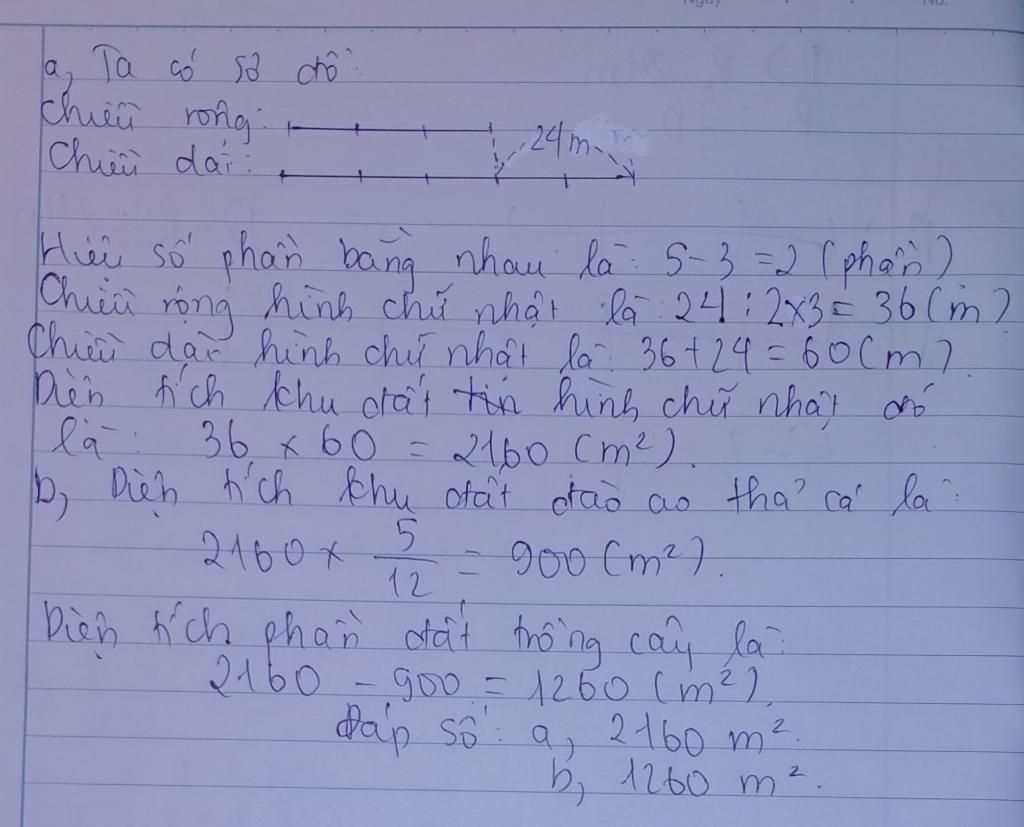 Ngày No.
a, Ta có sơ đồ:
Chiều rộng:
24m
Chiều dài:
Hiệu số phần bằng nhau là: 5-3=2 (phần)
Chiều rộng hình chữ nhật là: 24:2x3= 36(m)
Chiều dài hình chữ nhật là: 36+24=60(m)
Diện tích khu đất hình chữ nhật đó
là: 36 x 60 = 2160 (m²).
b, Diện tích khu đất đào ao thả cá là:
2160 x 5/12 = 900 (m²).
Diện tích phần đất trồng cây là:
2160 - 900 = 1260 (m²).
Đáp số: a, 2160 m².
b, 1260 m².